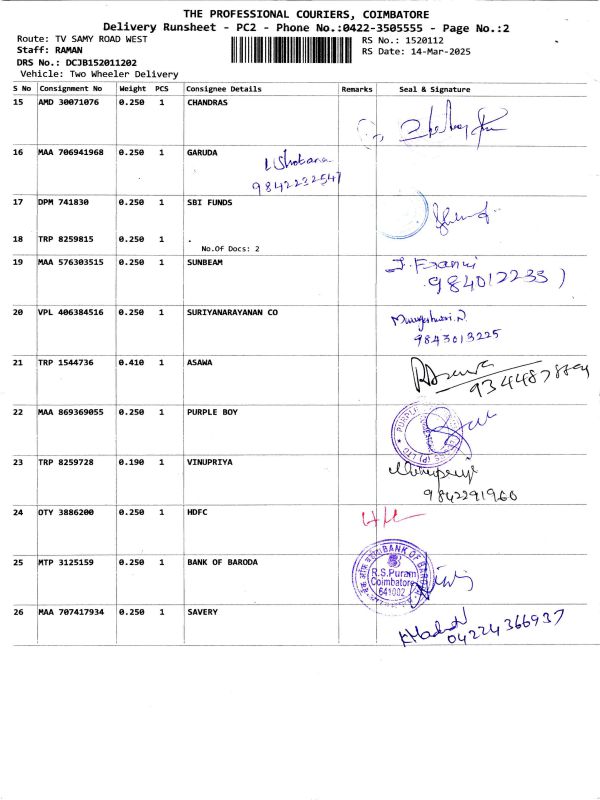 THE PROFESSIONAL COURIERS, COIMBATORE
Delivery Runsheet - PC2 - Phone No.:0422-3505555 - Page No.:2
Route: TV SAMY ROAD WEST RS No.: 1520112
Staff: RAMAN RS Date: 14-Mar-2025
DRS No.: DCJB152011202
Vehicle: Two Wheeler Delivery
S No Consignment No Weight PCS Consignee Details Remarks Seal & Signature
15 AMD 30071076 0.250 1 CHANDRAS
16 MAA 706941968 0.250 1 GARUDA
Shobana
9842232547
17 DPM 741830 0.250 1 SBI FUNDS
18 TRP 8259815 0.250 1 .
No.Of Docs: 2
19 MAA 576303515 0.250 1 SUNBEAM
20 VPL 406384516 0.250 1 SURIYANARAYANAN CO
9843013225
21 TRP 1544736 0.410 1 ASAWA
22 MAA 869369055 0.250 1 PURPLE BOY
23 TRP 8259728 0.190 1 VINUPRIYA
9842291960
24 OTY 3886200 0.250 1 HDFC
25 MTP 3125159 0.250 1 BANK OF BARODA
BANK OF BARODA
R.S.Puram
Coimbatore
641002
26 MAA 707417934 0.250 1 SAVERY
04224366937